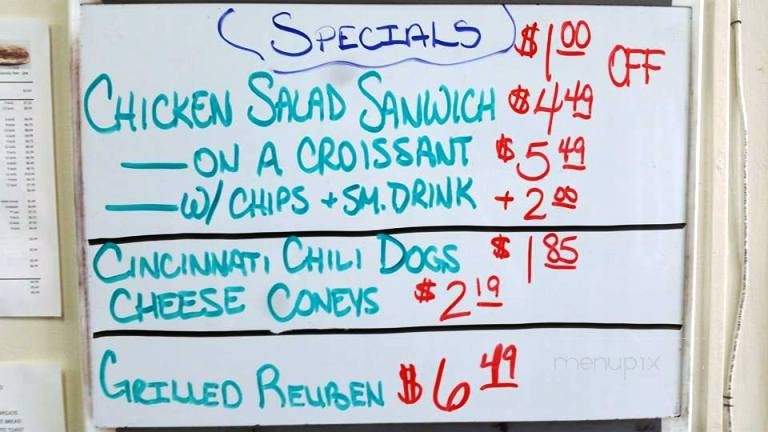 SPECIALS $1.00 OFF
CHICKEN SALAD SANWICH $4.49
— ON A CROISSANT $5.49
— W/ CHIPS + SM. DRINK + 2.00
CINCINNATI CHILI DOGS $1.85
CHEESE CONEYS $2.19
GRILLED REUBEN $6.49
menupix